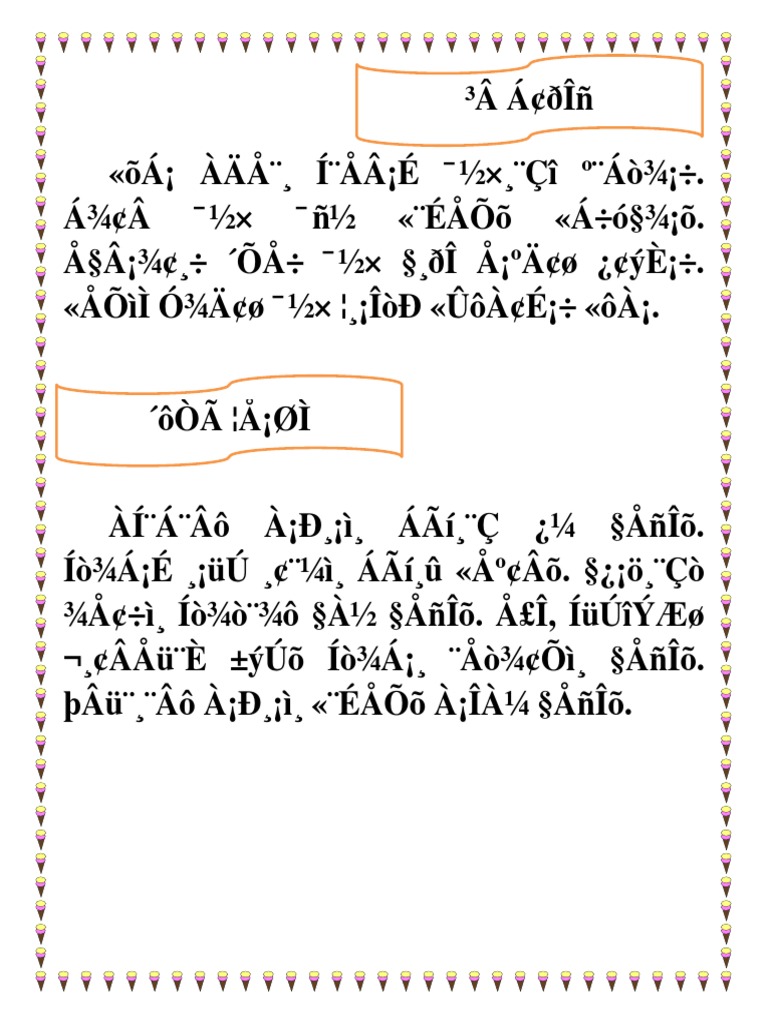 ³Â Á¢ðÎñ
«õÁ¡ ÀÄÅ¨¸ Í¨ÅÂ¡É ¯½×¸¨Çî º¨Áò¾¡÷.
Á¾¢Â ¯½× ¯ñ½ «¨ÉÅÕõ «Á÷ó§¾¡õ.
Å§Â¡¾¢¸÷ ´ÕÅ÷ ¯½× §¸ðÎ Å¡ºÄ¢ø ¿¢ýÈ¡÷.
«ÅÕìÌ Ó¾Ä¢ø ¯½× ¦¸¡ÎòÐ «ÛôÀ¢É¡÷ «ôÀ¡.
´ôÒÃ ¦Å¡ØÌ
ÀÍ¨Á¨Âô À¡Ð¸¡ì¸ ÁÃí¸¨Ç ¿¼ §ÅñÎõ.
Íò¾Á¡É ¸¡üÚ ¸¢¨¼ì¸ ÁÃí¸û «Åº¢Âõ. §¿¡ö¸¨Çò
¾Å¢÷ì¸ Íò¾ò¨¾ô §À½ §ÅñÎõ. Å£Î, ÍüÚîÝÆø
¬¸¢ÂÅü¨È ±ýÚõ Íò¾Á¡¸ ¨Åò¾¢Õì¸ §ÅñÎõ.
þÂü¨¸¨Âô À¡Ð¸¡ì¸ «¨ÉÅÕõ À¡ÎÀ¼ §ÅñÎõ.